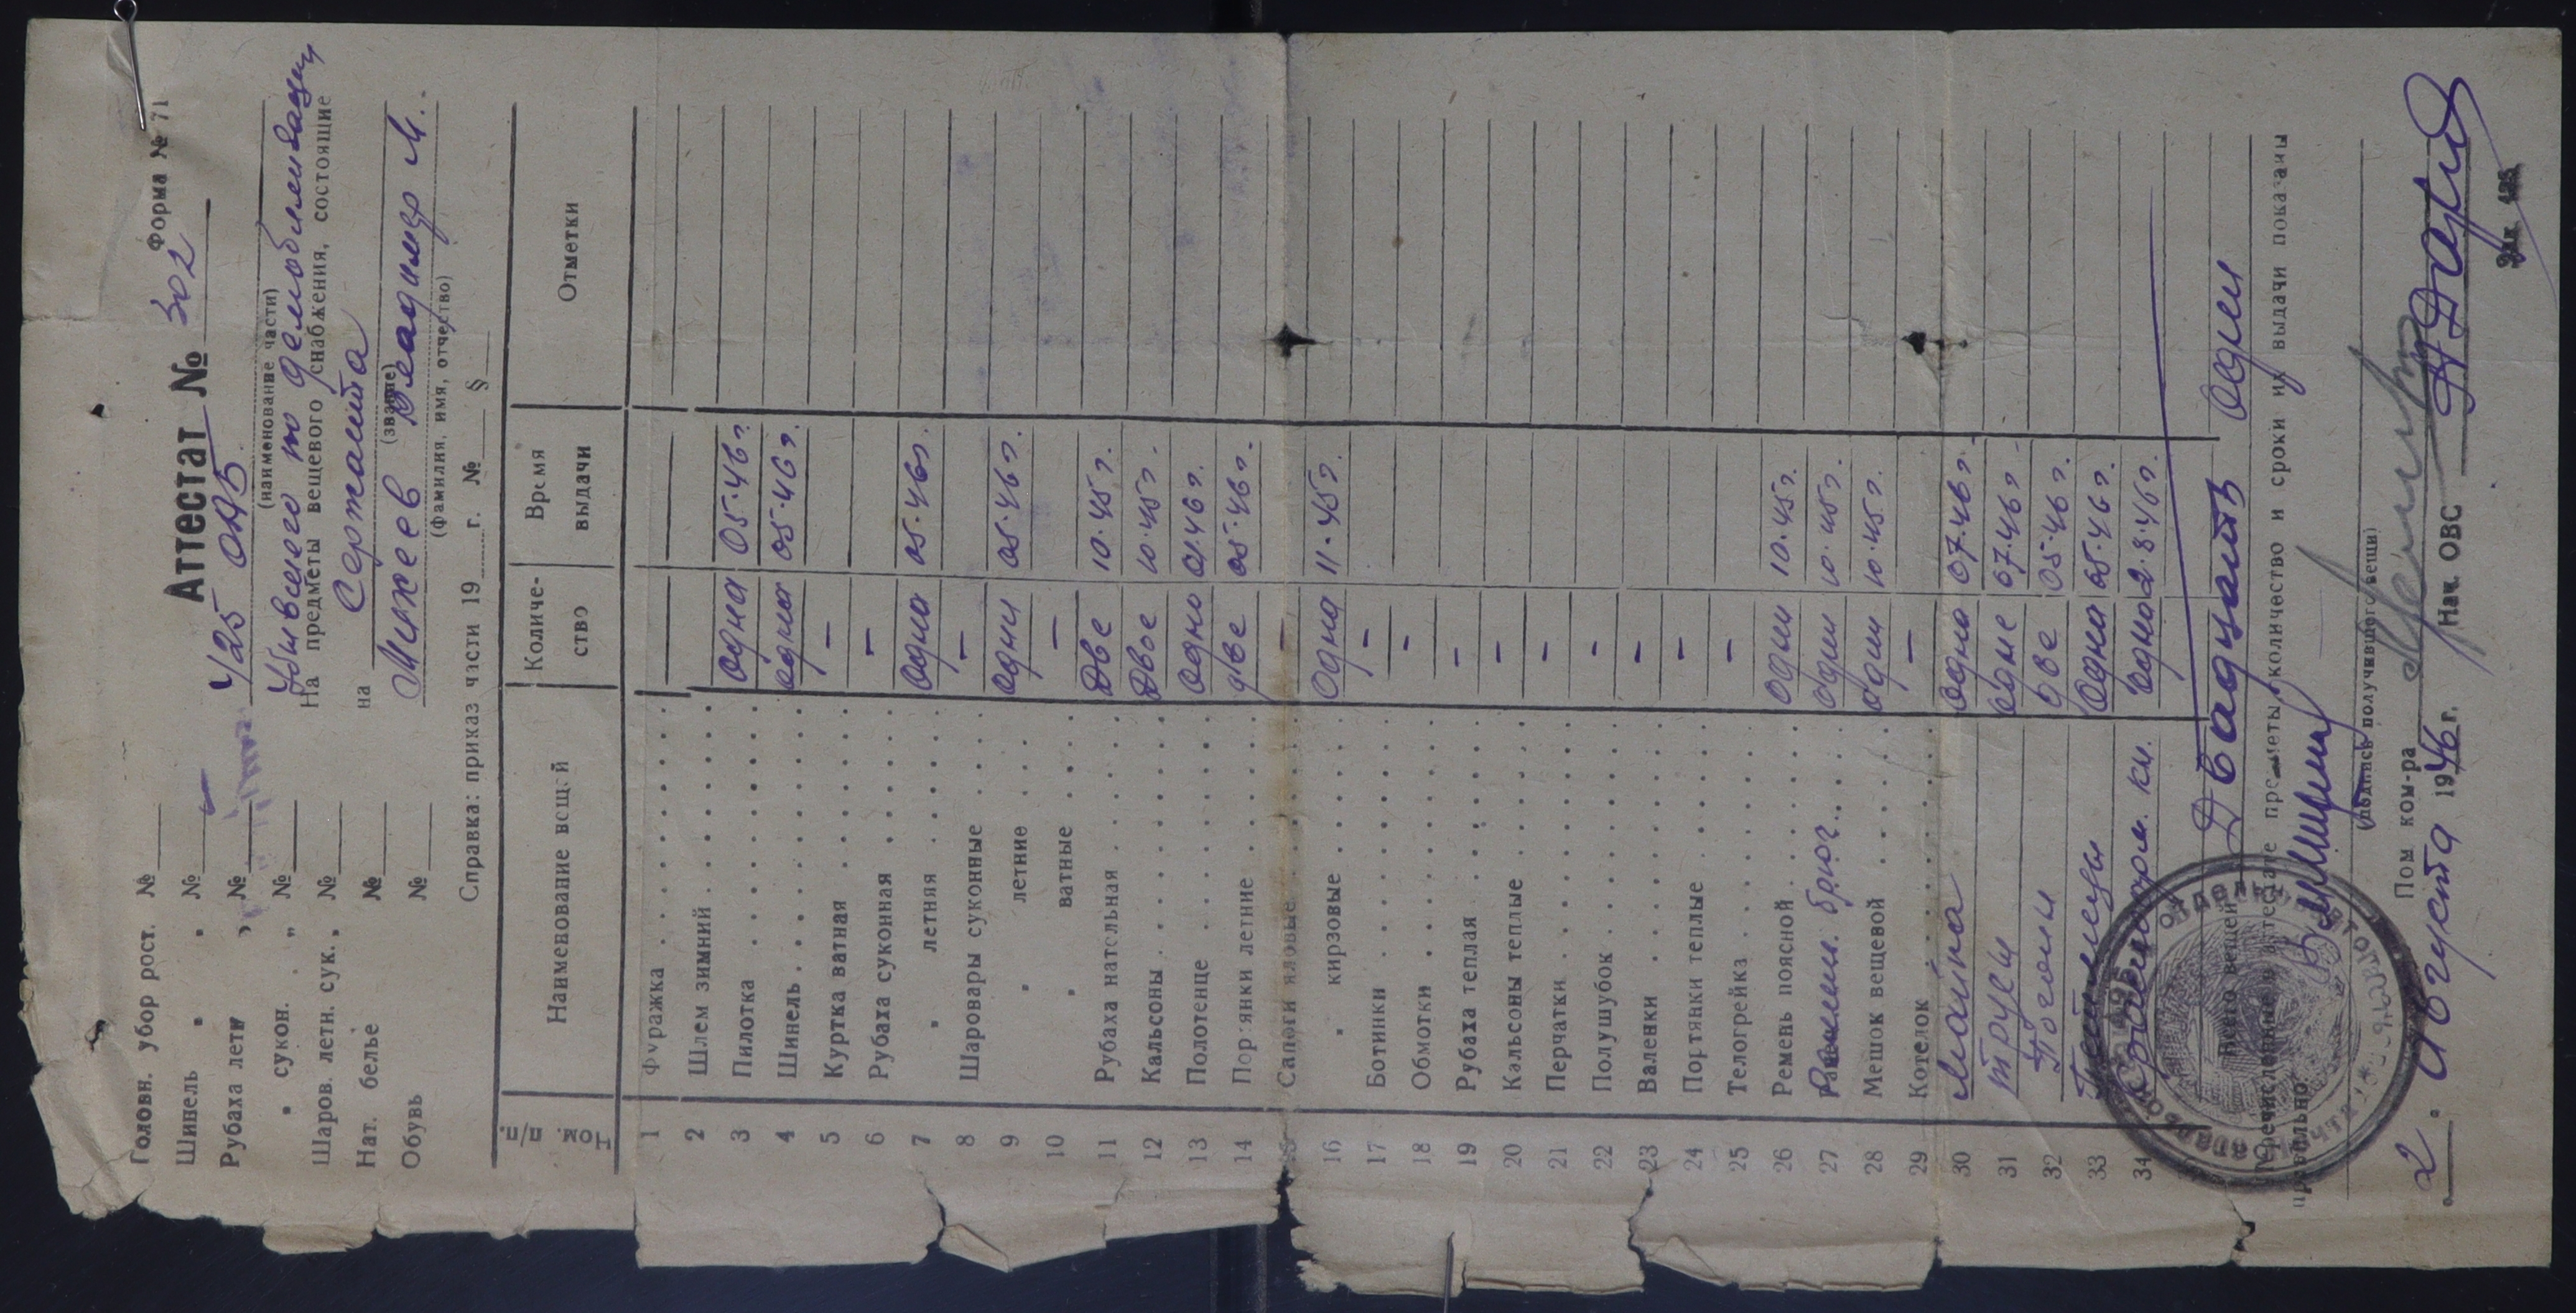 Форма № 71
Аттестат № 302
425 ОАБ
(наименование части)
Убывшего по демобилизации
На предметы вещевого снабжения, состоящие
на сержанта
(звание)
Михеев Владимир М.
(фамилия, имя, отчество)
Справка: приказ части 19 г. № §
Головн. убор рост. №
Шинель " " №
Рубаха летн " №
" сукон. " №
Шаров. летн. сук. " №
Нат. белье №
Обувь №
№№ п/п. Наименование вещей Количество Время выдачи Отметки
1 Фуражка
2 Шлем зимний
3 Пилотка одна 05.46 г.
4 Шинель одна 05.46 г.
5 Куртка ватная –
6 Рубаха суконная –
7 " летняя одна 05.46 г.
8 Шаровары суконные –
9 " летние одни 05.46 г.
10 " ватные –
11 Рубаха нательная две 10.45 г.
12 Кальсоны двое 10.45 г.
13 Полотенце одно 01.46 г.
14 Портянки летние две 05.46 г.
15 Сапоги яловые –
16 " кирзовые одна 11.45 г.
17 Ботинки –
18 Обмотки –
19 Рубаха теплая –
20 Кальсоны теплые –
21 Перчатки –
22 Полушубок –
23 Валенки –
24 Портянки теплые –
25 Телогрейка –
26 Ремень поясной один 10.45 г.
27 Ремень брюч. один 10.45 г.
28 Мешок вещевой один 10.45 г.
29 Котелок –
30 Майка одна 07.46 г.
31 Трусы одне 07.46 г.
32 Погоны две 05.46 г.
33 Петлицы одна 05.46 г.
34 кн. одна 2.8.46 г.
Всего вещей Двадцать один
Перечисленные в аттестате предметы, количество и сроки их выдачи показаны
правильно
(подпись получившего вещи)
Пом ком-ра
"2" Августа 1946 г. Нач. ОВС